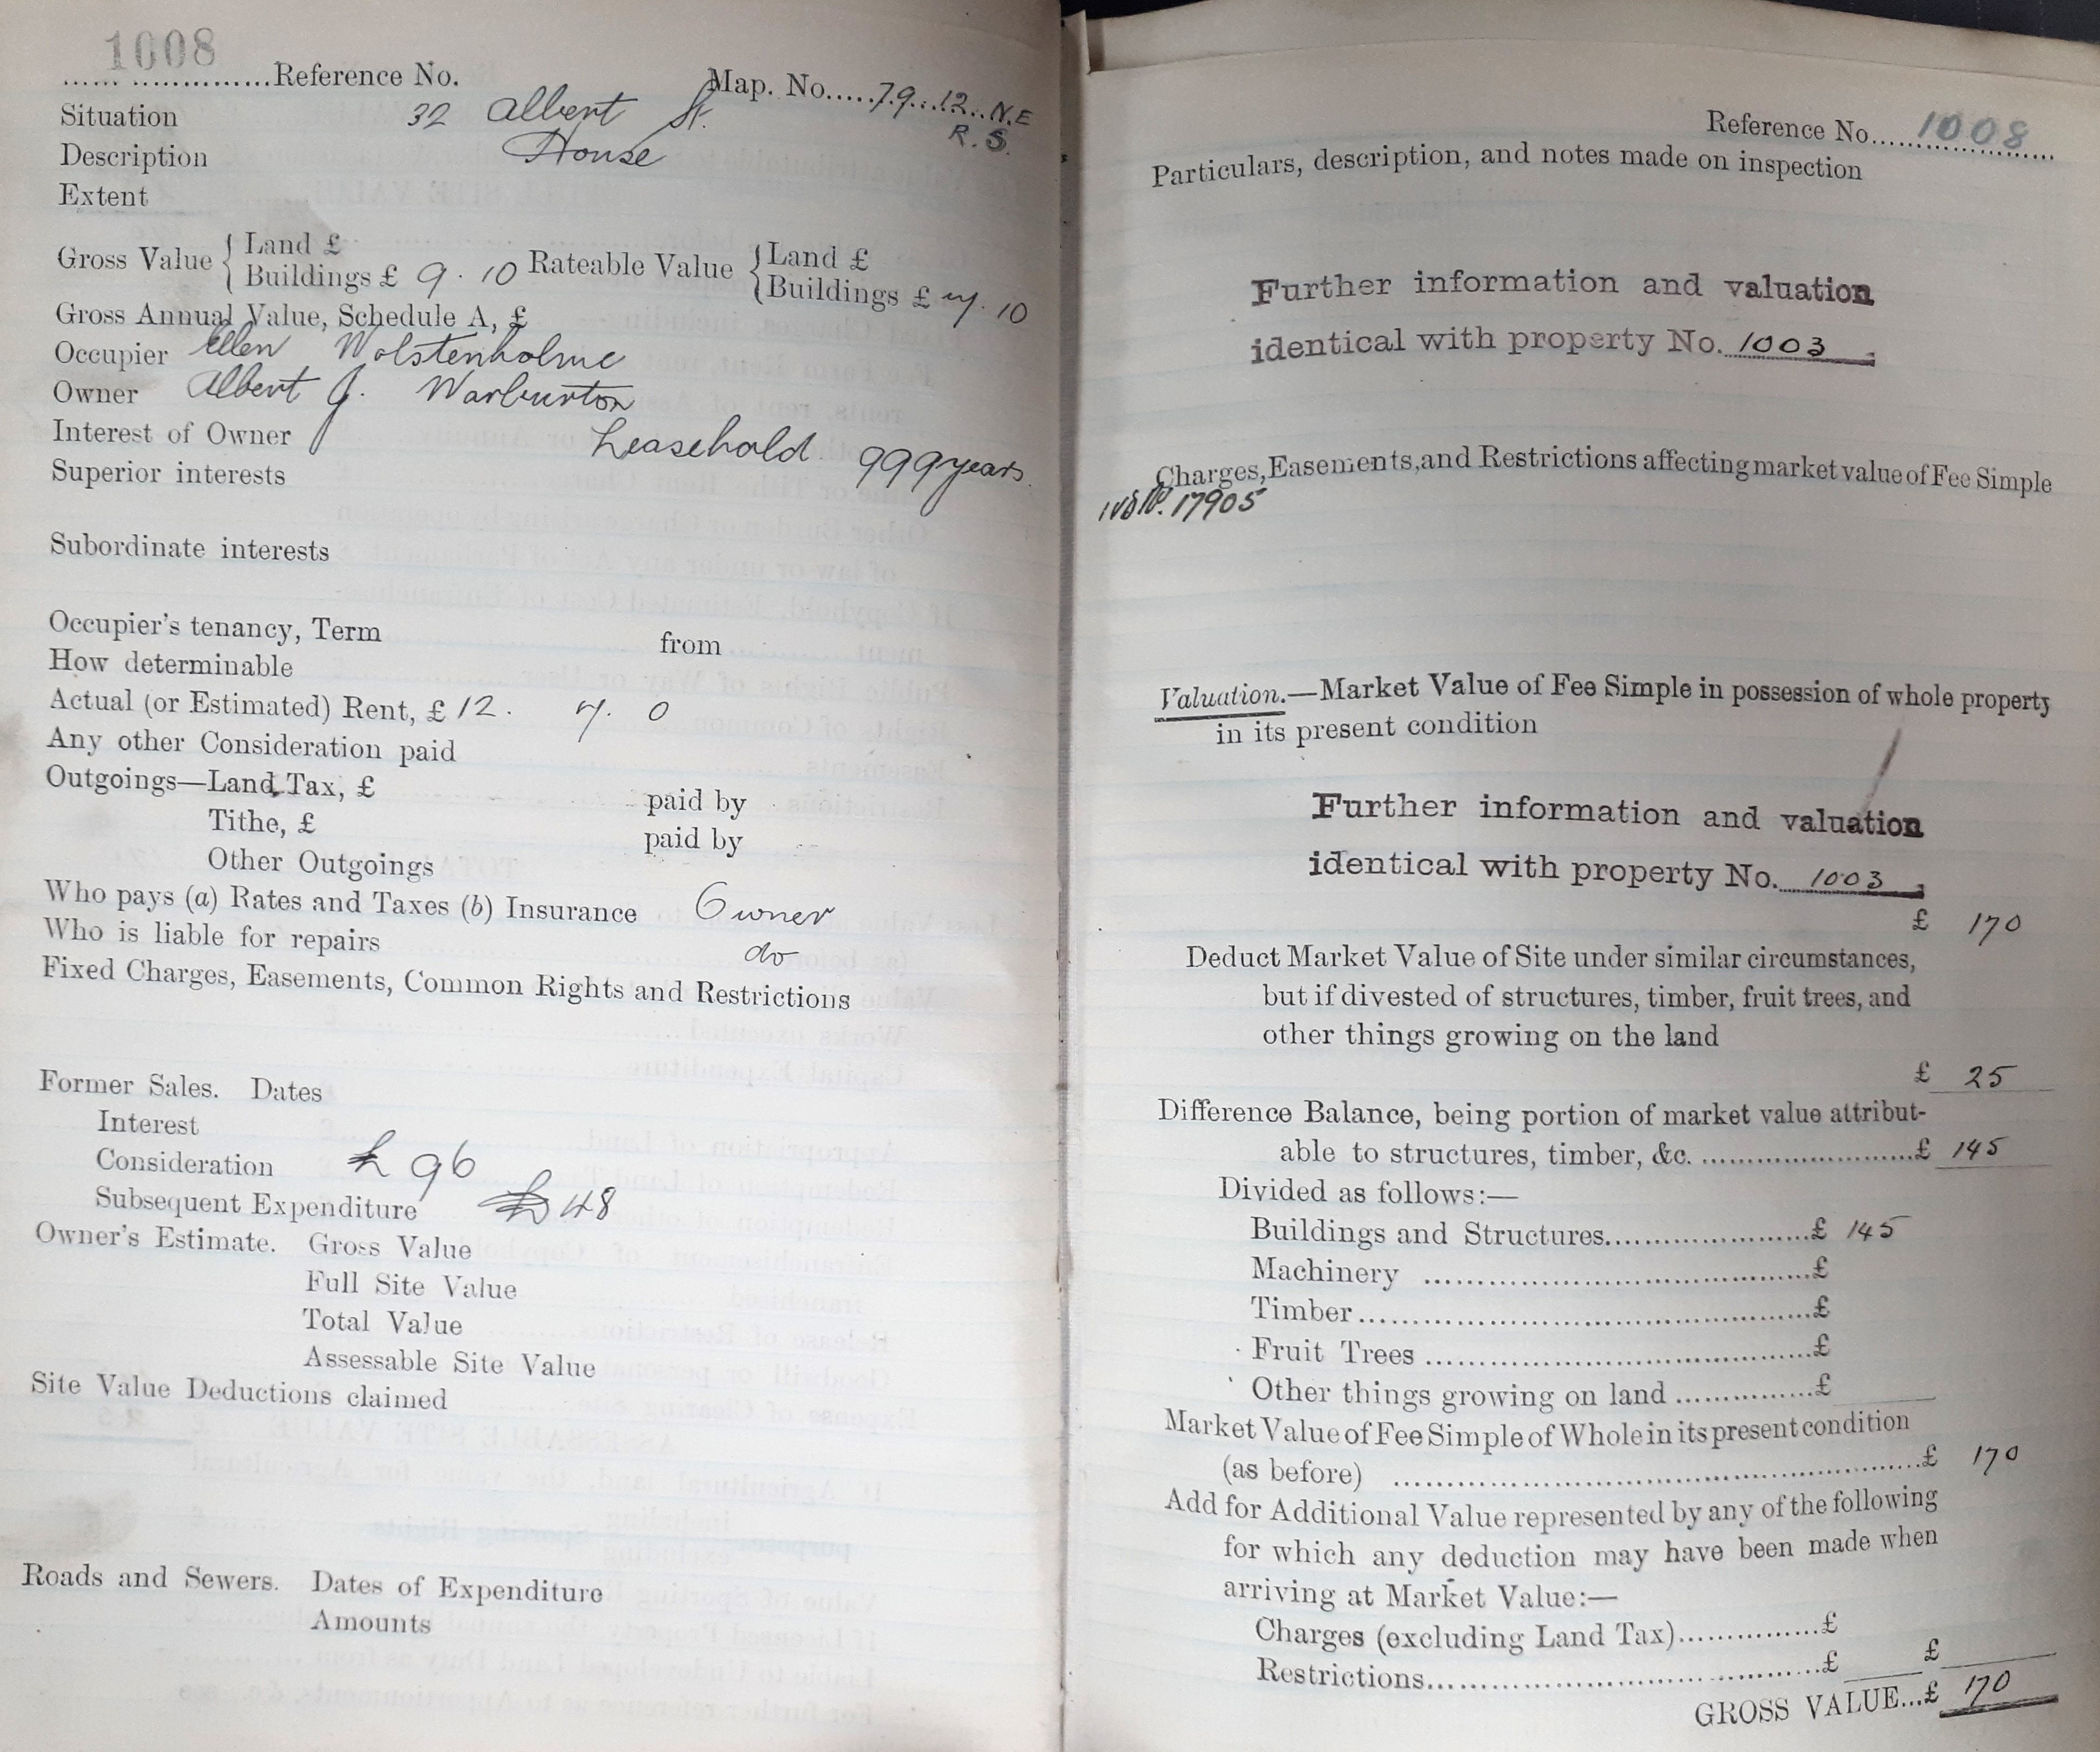 1008
...... ...............Reference No. Map. No.....79...12..N.E
R.S.
Situation 32 Albert St.
Description House
Extent
Gross Value { Land £
Buildings £ 9. 10 Rateable Value { Land £
Buildings £ 7. 10
Gross Annual Value, Schedule A, £
Occupier Ellen Wolstenholme
Owner Albert J. Warburton
Interest of Owner Leasehold. 999 years.
Superior interests
Subordinate interests
Occupier's tenancy, Term from
How determinable
Actual (or Estimated) Rent, £ 12. 7. 0
Any other Consideration paid
Outgoings—Land Tax, £ paid by
Tithe, £ paid by
Other Outgoings
Who pays (a) Rates and Taxes (b) Insurance Owner
Who is liable for repairs do
Fixed Charges, Easements, Common Rights and Restrictions
Former Sales. Dates
Interest
Consideration £ 96
Subsequent Expenditure £48
Owner's Estimate. Gross Value
Full Site Value
Total Value
Assessable Site Value
Site Value Deductions claimed
Roads and Sewers. Dates of Expenditure
Amounts
Reference No....1008
Particulars, description, and notes made on inspection
Further information and valuation
identical with property No. 1003
Charges, Easements, and Restrictions affecting market value of Fee Simple
17905
Valuation.—Market Value of Fee Simple in possession of whole property
in its present condition
Further information and valuation
identical with property No. 1003
£ 170
Deduct Market Value of Site under similar circumstances,
but if divested of structures, timber, fruit trees, and
other things growing on the land
£ 25
Difference Balance, being portion of market value attribut-
able to structures, timber, &c. ........................£ 145
Divided as follows:—
Buildings and Structures.......................£ 145
Machinery ..........................................£
Timber................................................£
Fruit Trees .........................................£
Other things growing on land ...............£
Market Value of Fee Simple of Whole in its present condition
(as before) ..........................................................£ 170
Add for Additional Value represented by any of the following
for which any deduction may have been made when
arriving at Market Value:—
Charges (excluding Land Tax)...............£
Restrictions..........................................£ £
GROSS VALUE...£ 170